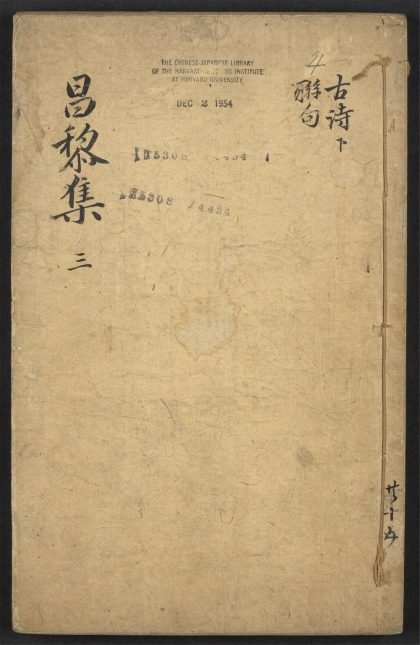 昌黎集 三
THE CHINESE-JAPANESE LIBRARY
OF THE HARVARD-YENCHING INSTITUTE
AT HARVARD UNIVERSITY
DEC 2 1954
5308 / 4434
4
古诗下
聯句
共十五